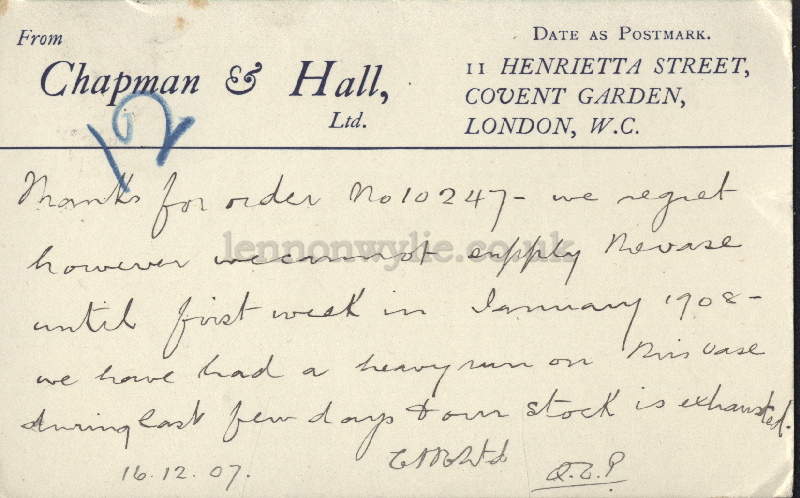 From
Chapman & Hall,
Ltd.
DATE AS POSTMARK.
11 HENRIETTA STREET,
COVENT GARDEN,
LONDON, W.C.
Thanks for order No 10247 - we regret
however we cannot supply the vase
until first week in January 1908 -
we have had a heavy run on this vase
during last few days & our stock is exhausted.
16.12.07.
lennonwylie.co.uk